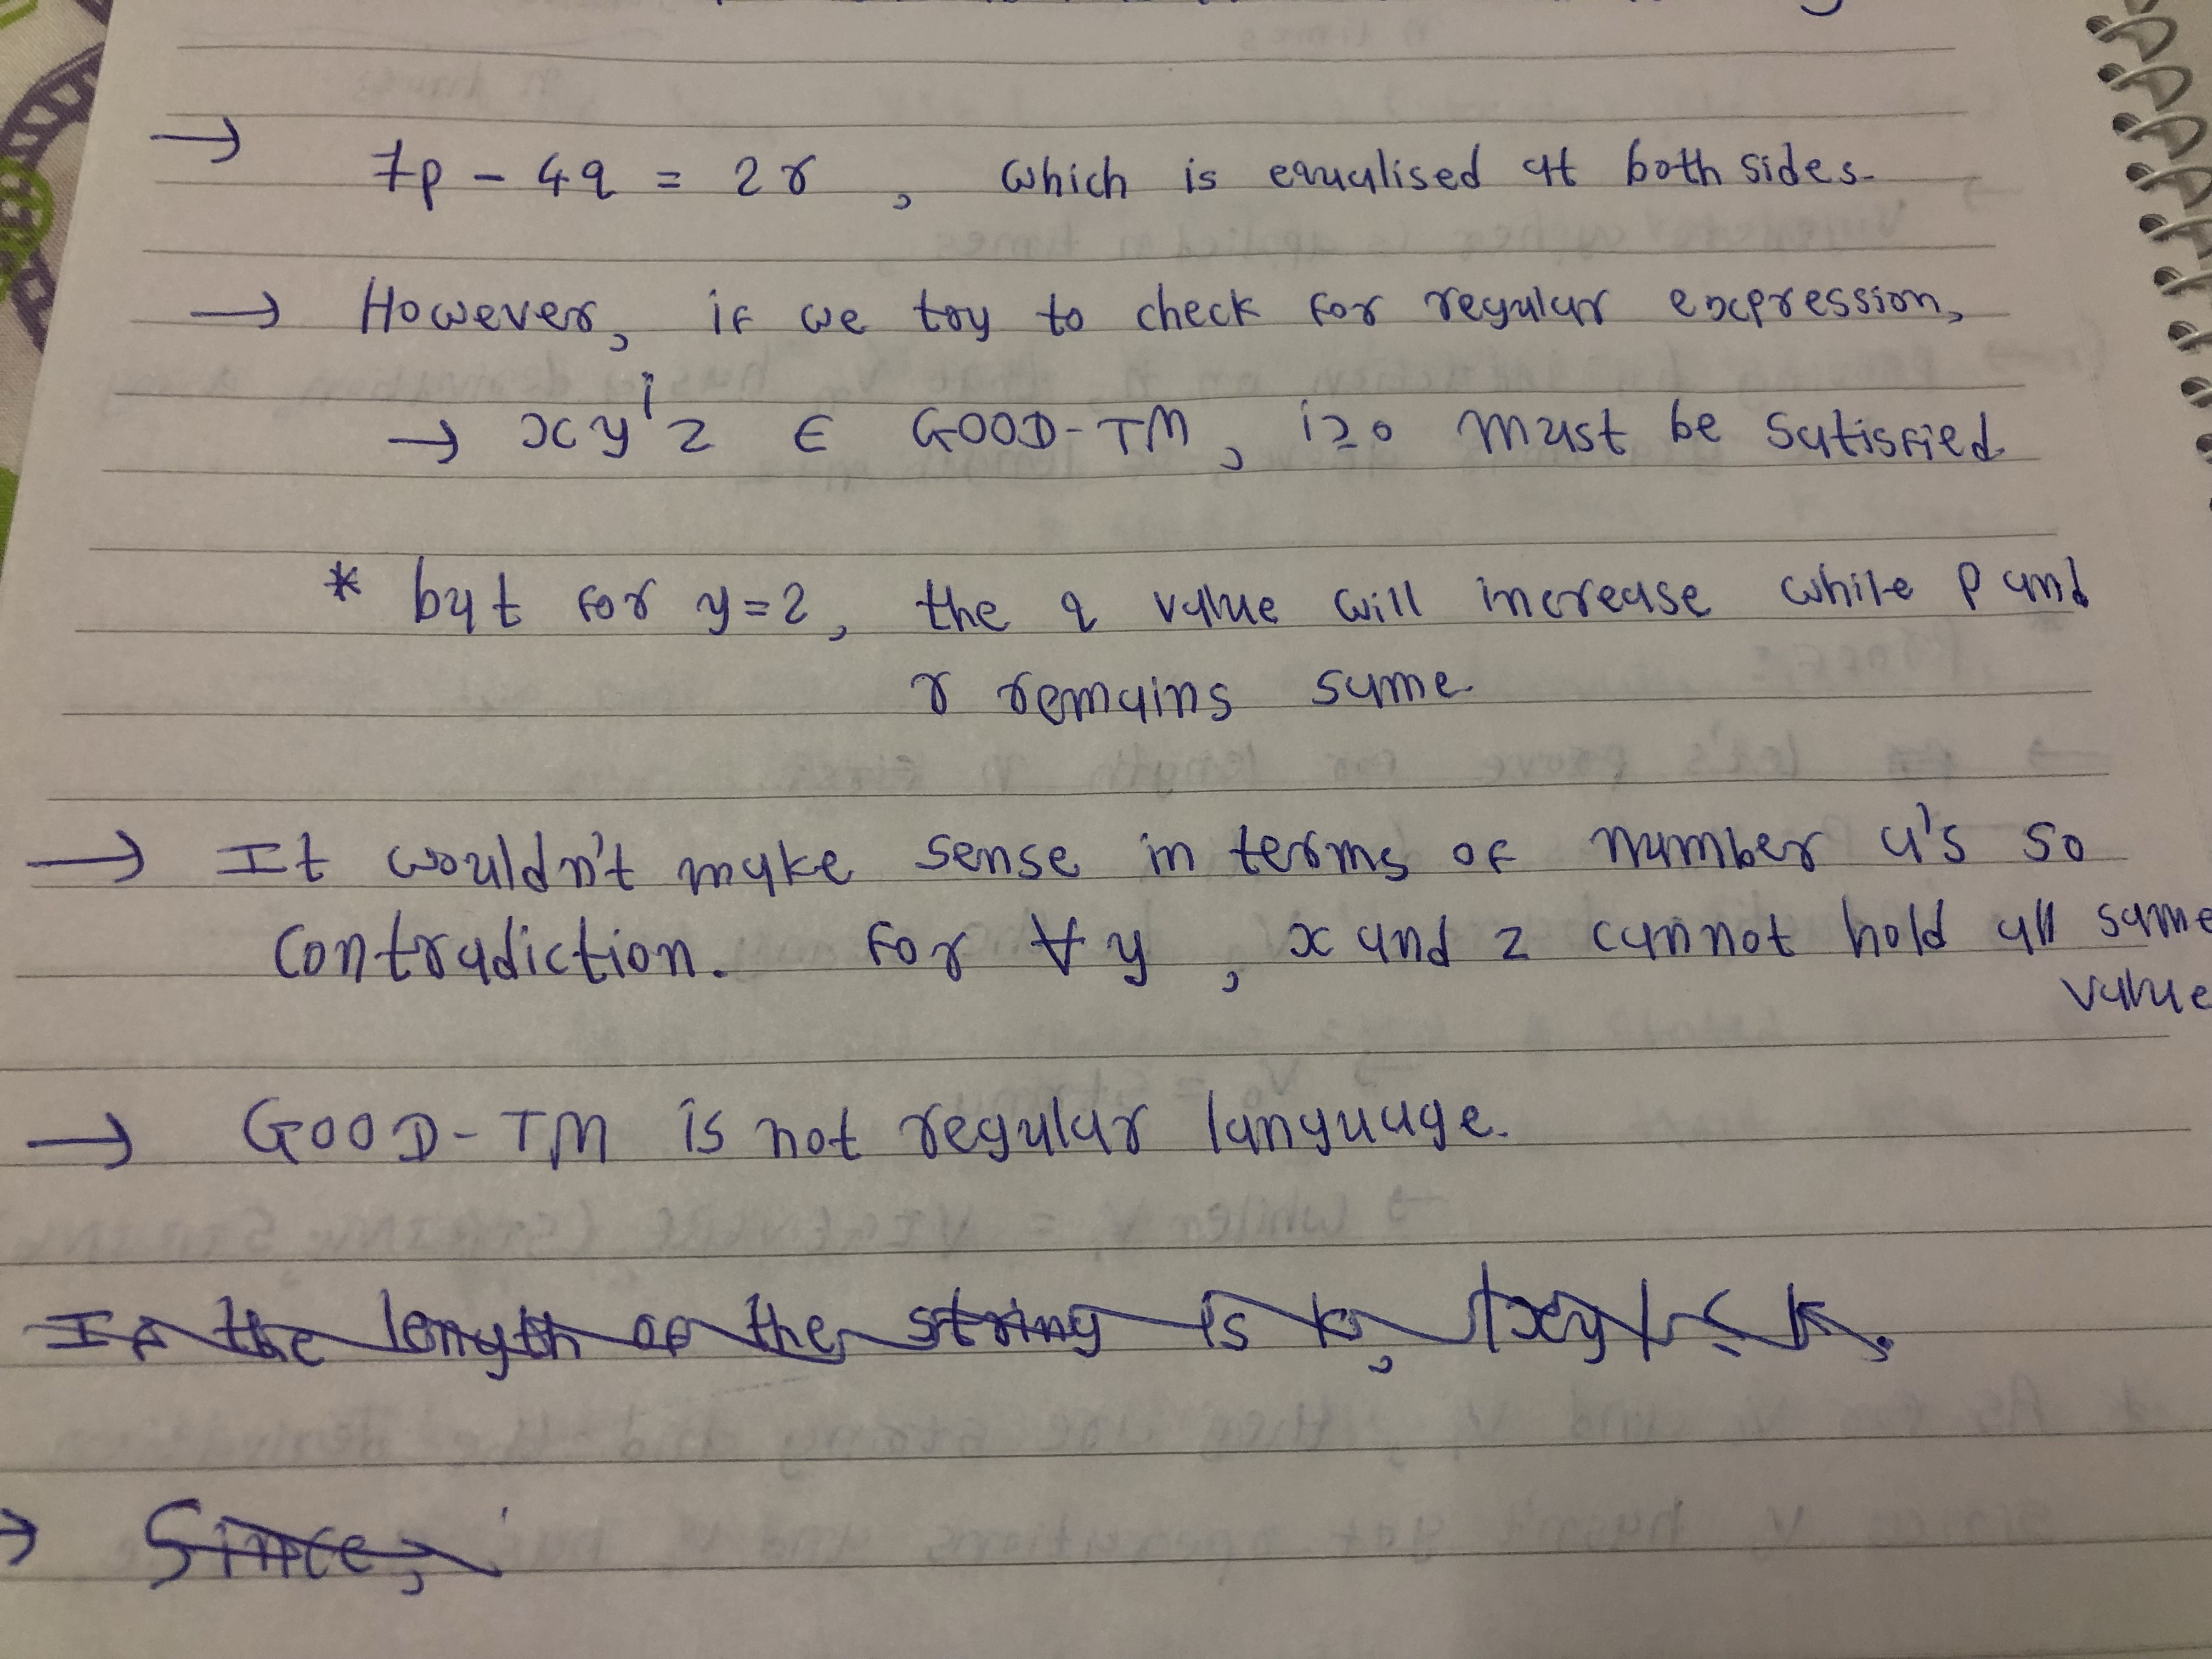 → 7p - 4q = 2r , which is equalised at both sides.
→ However, if we try to check for regular expression,
→ xyⁱz ∈ GOOD-TM , i≥0 must be satisfied.
* but for y=2, the q value will increase while p and
r remains same.
→ It wouldn't make sense in terms of number a's so
contradiction. For ∀y , x and z cannot hold all same
value
→ GOOD-TM is not regular language.
If the length of the string is k, |xy| ≤ k,
→ Since,